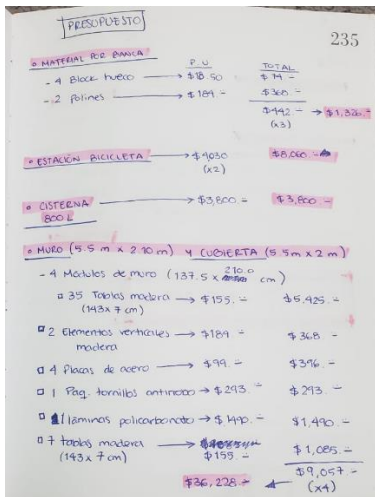 PRESUPUESTO
235
MATERIAL POR BANCA
P.U TOTAL
- 4 Block hueco → $18.50 $74.-
- 2 Polines → $184.- $368.-
$442.- → $1,326.-
(x3)
ESTACIÓN BICICLETA → $4,030 $8,060.-
(x2)
CISTERNA → $3,800.- $3,800.-
800 L
MURO (5.5 m x 2.10 m) y CUBIERTA (5.5 m x 2 m)
- 4 Modulos de muro (137.5 x 210.0 cm)
35 Tablas madera → $155.- $5,425.-
(143 x 7 cm)
2 Elementos verticales → $184.- $368.-
madera
4 Placas de acero → $99.- $396.-
1 Paq. tornillos antirrobo → $293.- $293.-
1 láminas policarbonato → $1,490.- $1,490.-
7 tablas madera → $155.- $1,085.-
(143 x 7 cm)
$9,057.-
$36,228.- ← (x4)